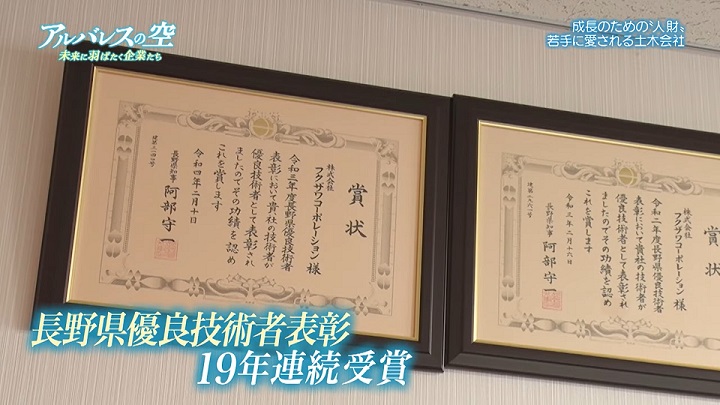 アルバレスの空
未来に羽ばたく企業たち
成長のための〝人財〟
若手に愛される土木会社
賞状
株式会社
フクザワコーポレーション 様
令和三年度長野県優良技術者
表彰において貴社の技術者が
優良技術者として表彰され
ましたのでその功績を認め
これを賞します
令和四年二月十日
長野県知事 阿部守一
賞状
株式会社
フクザワコーポレーション 様
令和二年度長野県優良技術者
表彰において貴社の技術者が
優良技術者として表彰され
ましたのでその功績を認め
これを賞します
令和三年二月十六日
長野県知事 阿部守一
長野県優良技術者表彰
19年連続受賞